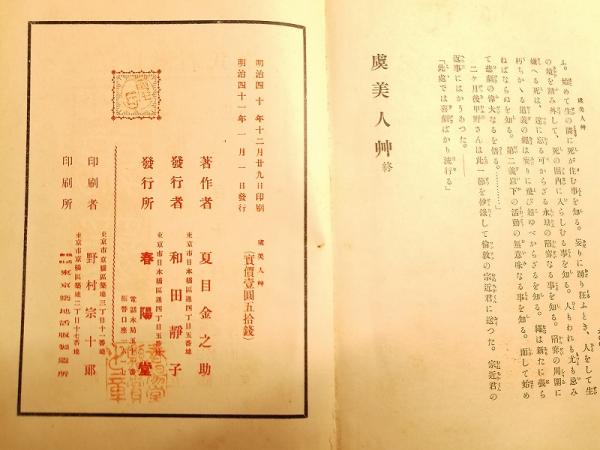 虞美人艸
ふ。始めて生の隣に死が住む事を知る。妄りに踊り狂ふとき、人をして生
の境を踏み外して、死の圜内に入らしむる事を知る。人もわれも尤も忌み
嫌へる死は、遂に忘る可からざる永劫の陷穽なる事を知る。陷穽の周圍に
朽ちかゝる道義の繩は妄りに飛び超ゆべからざるを知る。繩は新たに張ら
ねばならぬを知る。第二義以下の活動の無意味なる事を知る。而して始め
て悲劇の偉大なるを悟る。………」
二ケ月後甲野さんは此一節を抄錄して倫敦の宗近君に送つた。宗近君の
返事にはかうあつた。――
「此處では喜劇ばかり流行る」
虞美人艸 終
虞美人艸
(實價壹圓五拾錢)
明治四十年十二月廿九日印刷
明治四十一年一月一日發行
著作者 夏目金之助
東京市日本橋區通四丁目五番地
發行者 和田靜子
東京市日本橋區通四丁目五番地
發行所 春陽堂
電話本局五十一番
東京市京橋區築地三丁目十一番地
印刷者 野村宗十郎
東京市京橋區築地二丁目十七番地
印刷所 株式會社 東京築地活版製造所